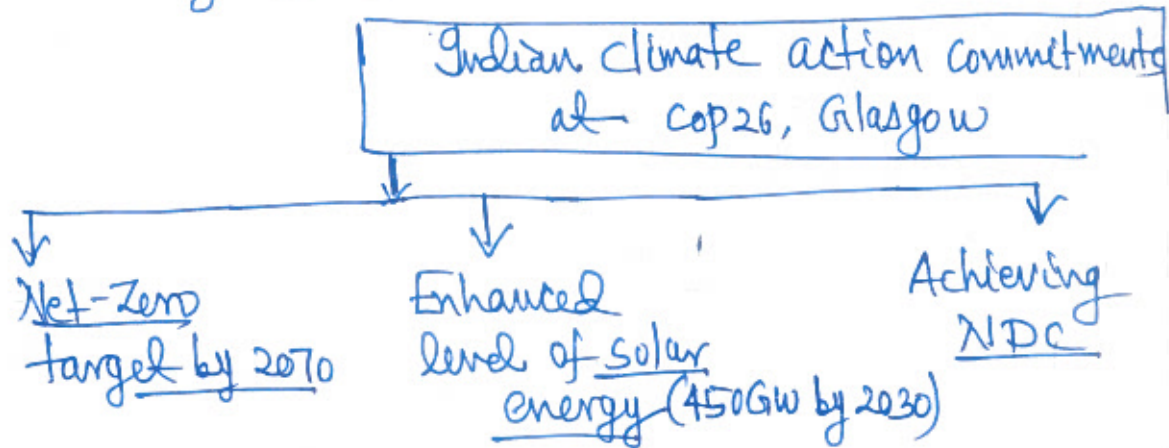 Indian climate action commitments
at COP26, Glasgow
Net-Zero
target by 2070
Enhanced
level of solar
energy (450GW by 2030)
Achieving
NDC